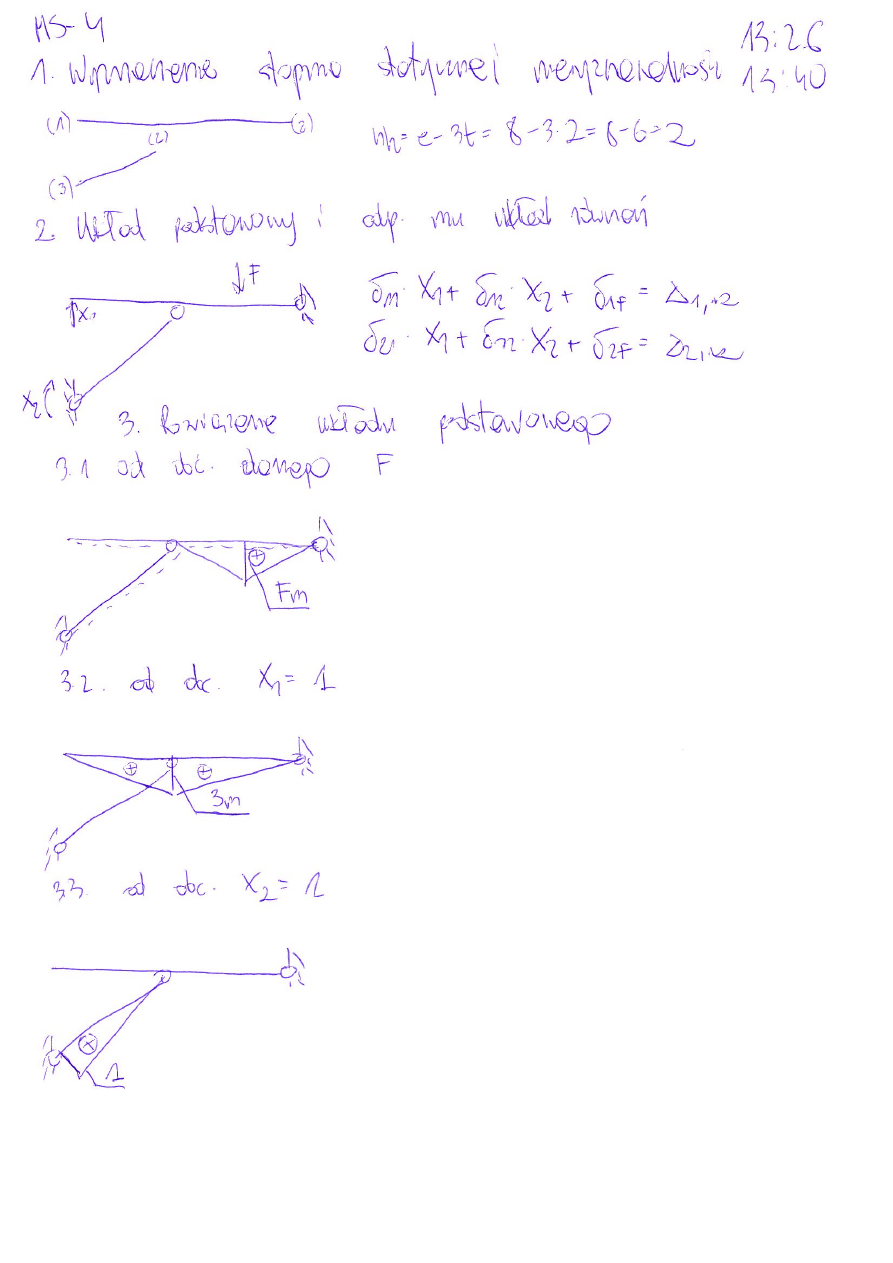 MS-4
13:26
1. Wyznaczenie stopnia statycznej niewyznaczalności
13:40
(1) (2) (2)
nh = e - 3t = 8 - 3·2 = 8 - 6 = 2
(3)
2. Układ podstawowy i odp. mu układ równań
F
X₁
δ₁₁· X₁ + δ₁₂· X₂ + δ₁F =
δ₂₁· X₁ + δ₂₂· X₂ + δ₂F =
X₂
3. Rozwiązanie układu podstawowego
3.1 od obc. danego F
⊕
Fm
3.2. od obc. X₁ = 1
⊕ ⊕
3m
3.3. od obc. X₂ = 1
⊕
1